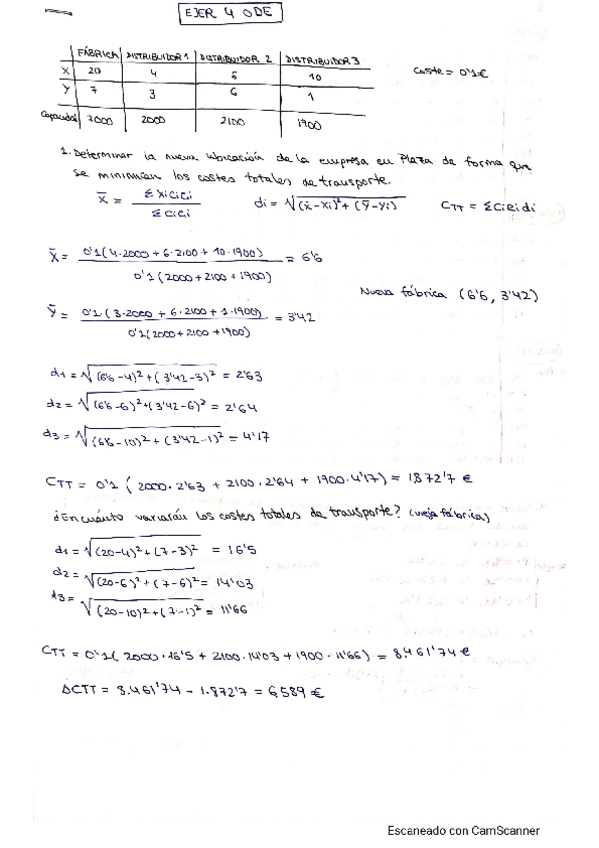 EJER 4 ODE
FÁBRICA DISTRIBUIDOR 1 DISTRIBUIDOR 2 DISTRIBUIDOR 3
X 20 4 6 10
Y 7 3 6 1
Capacidad 7000 2000 2100 1900
Coste = 0'1€
1. Determinar la nueva ubicación de la empresa en Plaza de forma que
se minimicen los costes totales de transporte.
X̄ = ΣXiCiEi / ΣCiEi di = √(x̄-xi)²+(ȳ-yi) CTT = ΣCiEidi
X̄ = 0'1(4·2000 + 6·2100 + 10·1900) / 0'1(2000+2100+1900) = 6'6
Nueva fábrica (6'6, 3'42)
Ȳ = 0'1(3·2000 + 6·2100 + 1·1900) / 0'1(2000+2100+1900) = 3'42
d1 = √(6'6-4)²+(3'42-3)² = 2'63
d2 = √(6'6-6)²+(3'42-6)² = 2'64
d3 = √(6'6-10)²+(3'42-1)² = 4'17
CTT = 0'1 (2000·2'63 + 2100·2'64 + 1900·4'17) = 1872'7 €
¿En cuánto variarán los costes totales de transporte? (vieja fábrica)
d1 = √(20-4)²+(7-3)² = 16'5
d2 = √(20-6)²+(7-6)² = 14'03
d3 = √(20-10)²+(7-1)² = 11'66
CTT = 0'1(2000·16'5 + 2100·14'03 + 1900·11'66) = 8.461'74€
ΔCTT = 8.461'74 - 1.872'7 = 6589 €
Escaneado con CamScanner